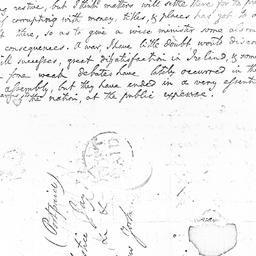 restive, but I think matters will settle there for the pr
if corrupting with money, titles, & places has yet to
there, so as to give a wise minister some
consequences. A war, I have little doubt would disco
ill successes, great dissatisfaction in Ireland, & som
few weak debates have lately occurred in the
assembly, but they have ended in a very
the nation, at the public expense.
(Postprice)
Jay
&c &c
York